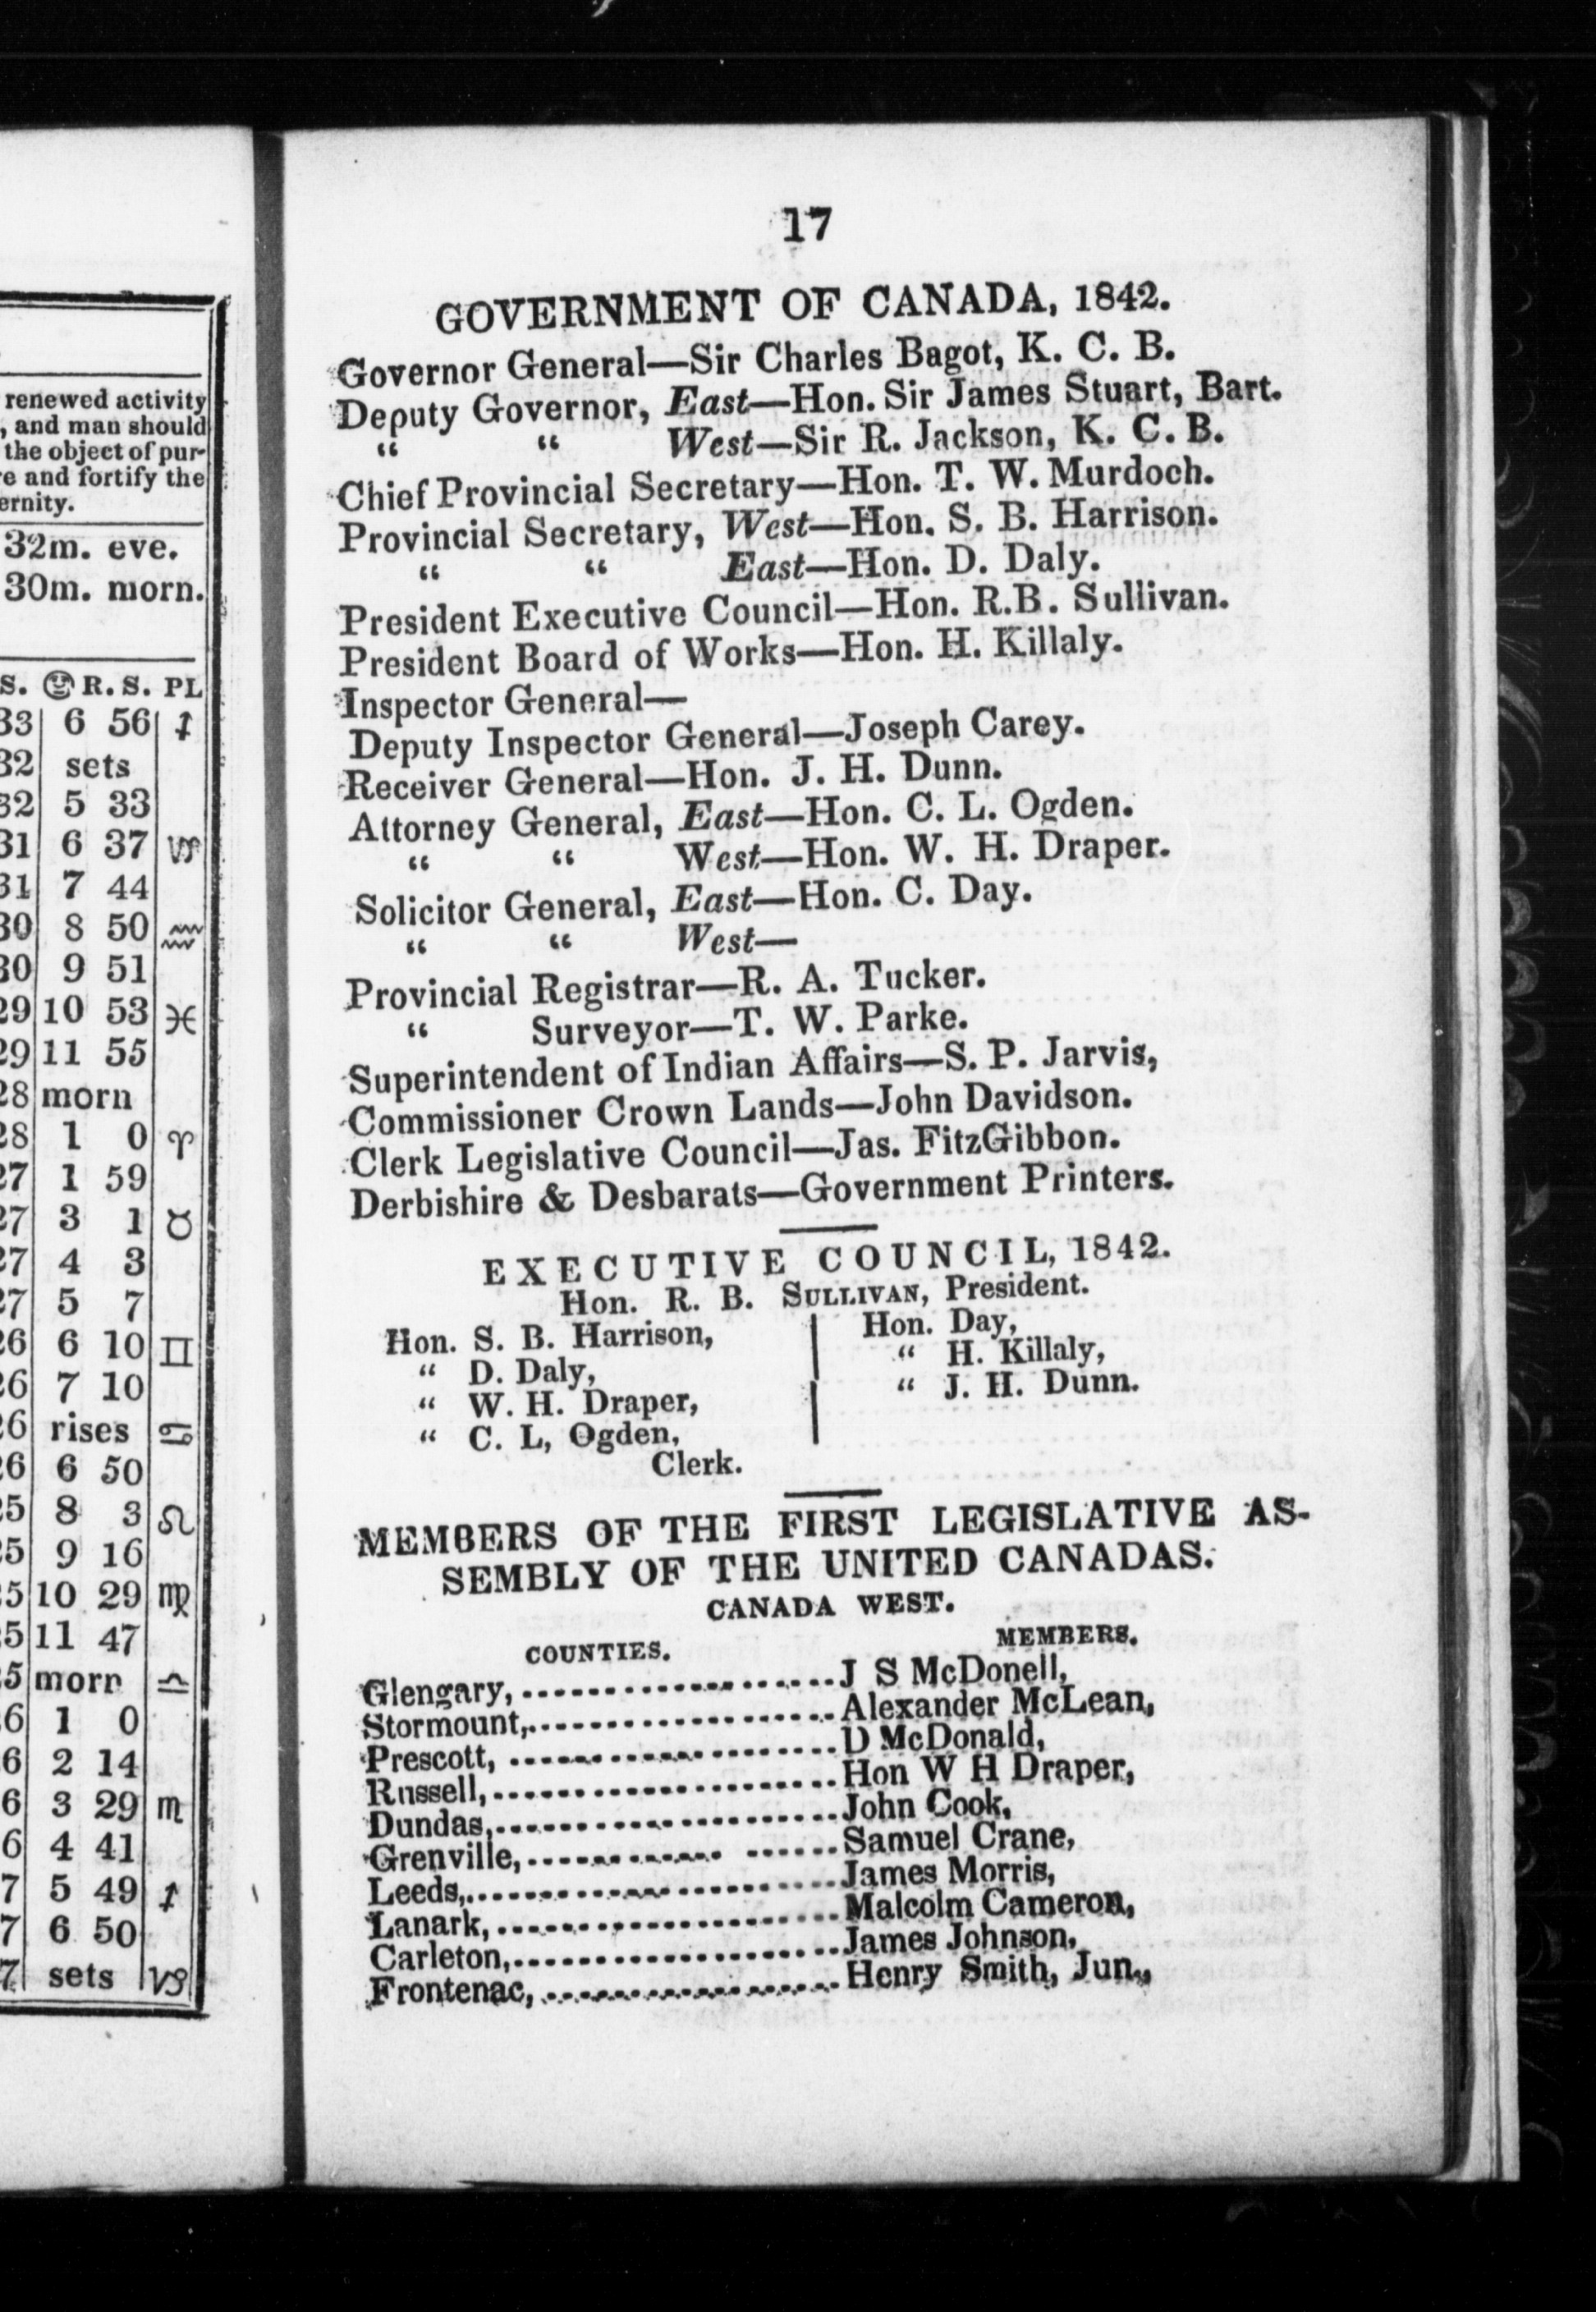 renewed activity
, and man should
the object of pur-
e and fortify the
ernity.
32m. eve.
30m. morn.
S. R. S. PL
33 6 56 ♐
32 sets
32 5 33
31 6 37 ♑
31 7 44
30 8 50 ♒
30 9 51
29 10 53 ♓
29 11 55
28 morn
28 1 0 ♈
27 1 59
27 3 1 ♉
27 4 3
27 5 7
26 6 10 ♊
26 7 10
26 rises ♋
26 6 50
25 8 3 ♌
25 9 16
25 10 29 ♍
25 11 47
25 morn ♎
6 1 0
6 2 14
6 3 29 ♏
6 4 41
7 5 49 ♐
7 6 50
7 sets ♑
17
GOVERNMENT OF CANADA, 1842.
Governor General—Sir Charles Bagot, K. C. B.
Deputy Governor, East—Hon. Sir James Stuart, Bart.
“ “ West—Sir R. Jackson, K. C. B.
Chief Provincial Secretary—Hon. T. W. Murdoch.
Provincial Secretary, West—Hon. S. B. Harrison.
“ “ East—Hon. D. Daly.
President Executive Council—Hon. R.B. Sullivan.
President Board of Works—Hon. H. Killaly.
Inspector General—
Deputy Inspector General—Joseph Carey.
Receiver General—Hon. J. H. Dunn.
Attorney General, East—Hon. C. L. Ogden.
“ “ West—Hon. W. H. Draper.
Solicitor General, East—Hon. C. Day.
“ “ West—
Provincial Registrar—R. A. Tucker.
“ Surveyor—T. W. Parke.
Superintendent of Indian Affairs—S. P. Jarvis,
Commissioner Crown Lands—John Davidson.
Clerk Legislative Council—Jas. FitzGibbon.
Derbishire & Desbarats—Government Printers.
EXECUTIVE COUNCIL, 1842.
Hon. R. B. SULLIVAN, President.
Hon. S. B. Harrison,
“ D. Daly,
“ W. H. Draper,
“ C. L, Ogden,
Hon. Day,
“ H. Killaly,
“ J. H. Dunn.
Clerk.
MEMBERS OF THE FIRST LEGISLATIVE AS-
SEMBLY OF THE UNITED CANADAS.
CANADA WEST.
COUNTIES. MEMBERS.
Glengary,....................J S McDonell,
Stormount,....................Alexander McLean,
Prescott, ....................D McDonald,
Russell,....................Hon W H Draper,
Dundas,....................John Cook,
Grenville,....................Samuel Crane,
Leeds,....................James Morris,
Lanark,....................Malcolm Cameron,
Carleton,....................James Johnson,
Frontenac,....................Henry Smith, Jun.,